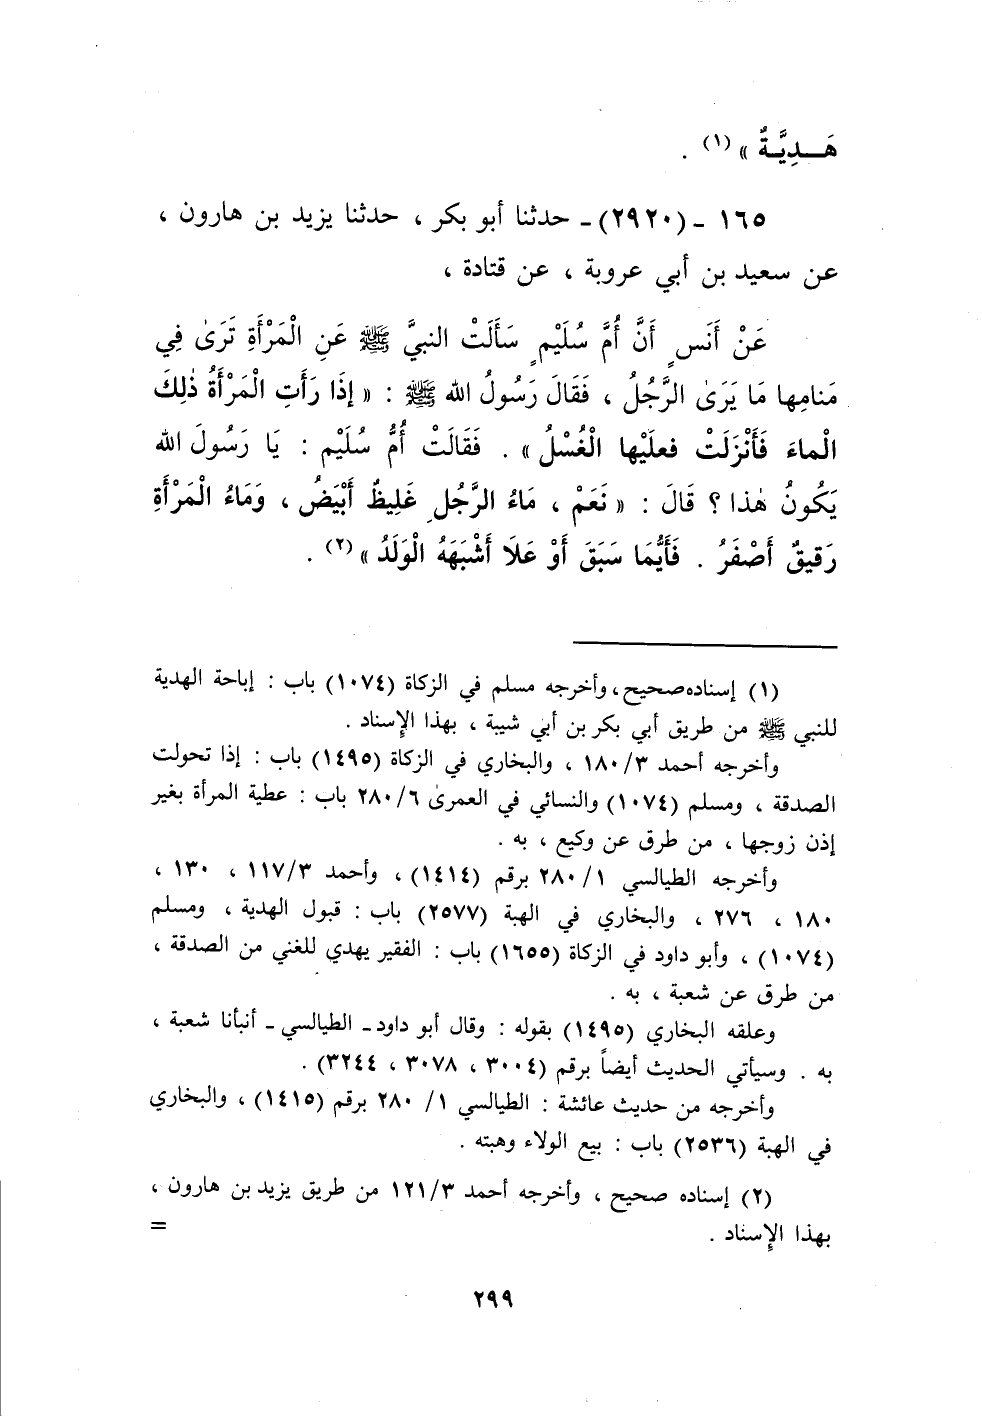 هَــدِيَّةٌ » (١) .
١٦٥ ـ (٢٩٢٠) ـ حدثنا أبو بكر ، حدثنا يزيد بن هارون ،
عن سعيد بن أبي عروبة ، عن قتادة ،
عَنْ أَنَسٍ أَنَّ أُمَّ سُلَيْمٍ سَأَلَتْ النبيَّ ﷺ عَنِ الْمَرْأَةِ تَرَىٰ فِي
مَنامِها مَا يَرَىٰ الرَّجُلُ ، فَقَالَ رَسُولُ الله ﷺ : « إِذَا رَأَتِ الْمَرْأَةُ ذٰلِكَ
الْماءَ فَأَنْزَلَتْ فعلَيْها الْغُسْلُ » . فَقَالَتْ أُمُّ سُلَيْم : يَا رَسُولَ الله
يَكُونُ هٰذا ؟ قَالَ : « نَعَمْ ، مَاءُ الرَّجُلِ غَلِيظٌ أَبْيَضُ ، وَمَاءُ الْمَرْأَةِ
رَقيقٌ أَصْفَرُ . فَأَيُّمَا سَبَقَ أَوْ عَلَا أَشْبَهَهُ الْوَلَدُ » (٢) .
(١) إسناده صحيح ، وأخرجه مسلم في الزكاة (١٠٧٤) باب : إباحة الهدية
للنبي ﷺ من طريق أبي بكر بن أبي شيبة ، بهذا الإِسناد .
وأخرجه أحمد ١٨٠/٣ ، والبخاري في الزكاة (١٤٩٥) باب : إذا تحولت
الصدقة ، ومسلم (١٠٧٤) والنسائي في العمرىٰ ٢٨٠/٦ باب : عطية المرأة بغير
إذن زوجها ، من طرق عن وكيع ، به .
وأخرجه الطيالسي ١/ ٢٨٠ برقم (١٤١٤) ، وأحمد ١١٧/٣ ، ١٣٠ ،
١٨٠ ، ٢٧٦ ، والبخاري في الهبة (٢٥٧٧) باب : قبول الهدية ، ومسلم
(١٠٧٤) ، وأبو داود في الزكاة (١٦٥٥) باب : الفقير يهدي للغني من الصدقة ،
من طرق عن شعبة ، به .
وعلقه البخاري (١٤٩٥) بقوله : وقال أبو داود ـ الطيالسي ـ أنبأنا شعبة ،
به . وسيأتي الحديث أيضاً برقم (٣٠٠٤ ، ٣٠٧٨ ، ٣٢٤٤) .
وأخرجه من حديث عائشة : الطيالسي ١/ ٢٨٠ برقم (١٤١٥) ، والبخاري
في الهبة (٢٥٣٦) باب : بيع الولاء وهبته .
(٢) إسناده صحيح ، وأخرجه أحمد ١٢١/٣ من طريق يزيد بن هارون ،
بهذا الإِسناد . =
٢٩٩